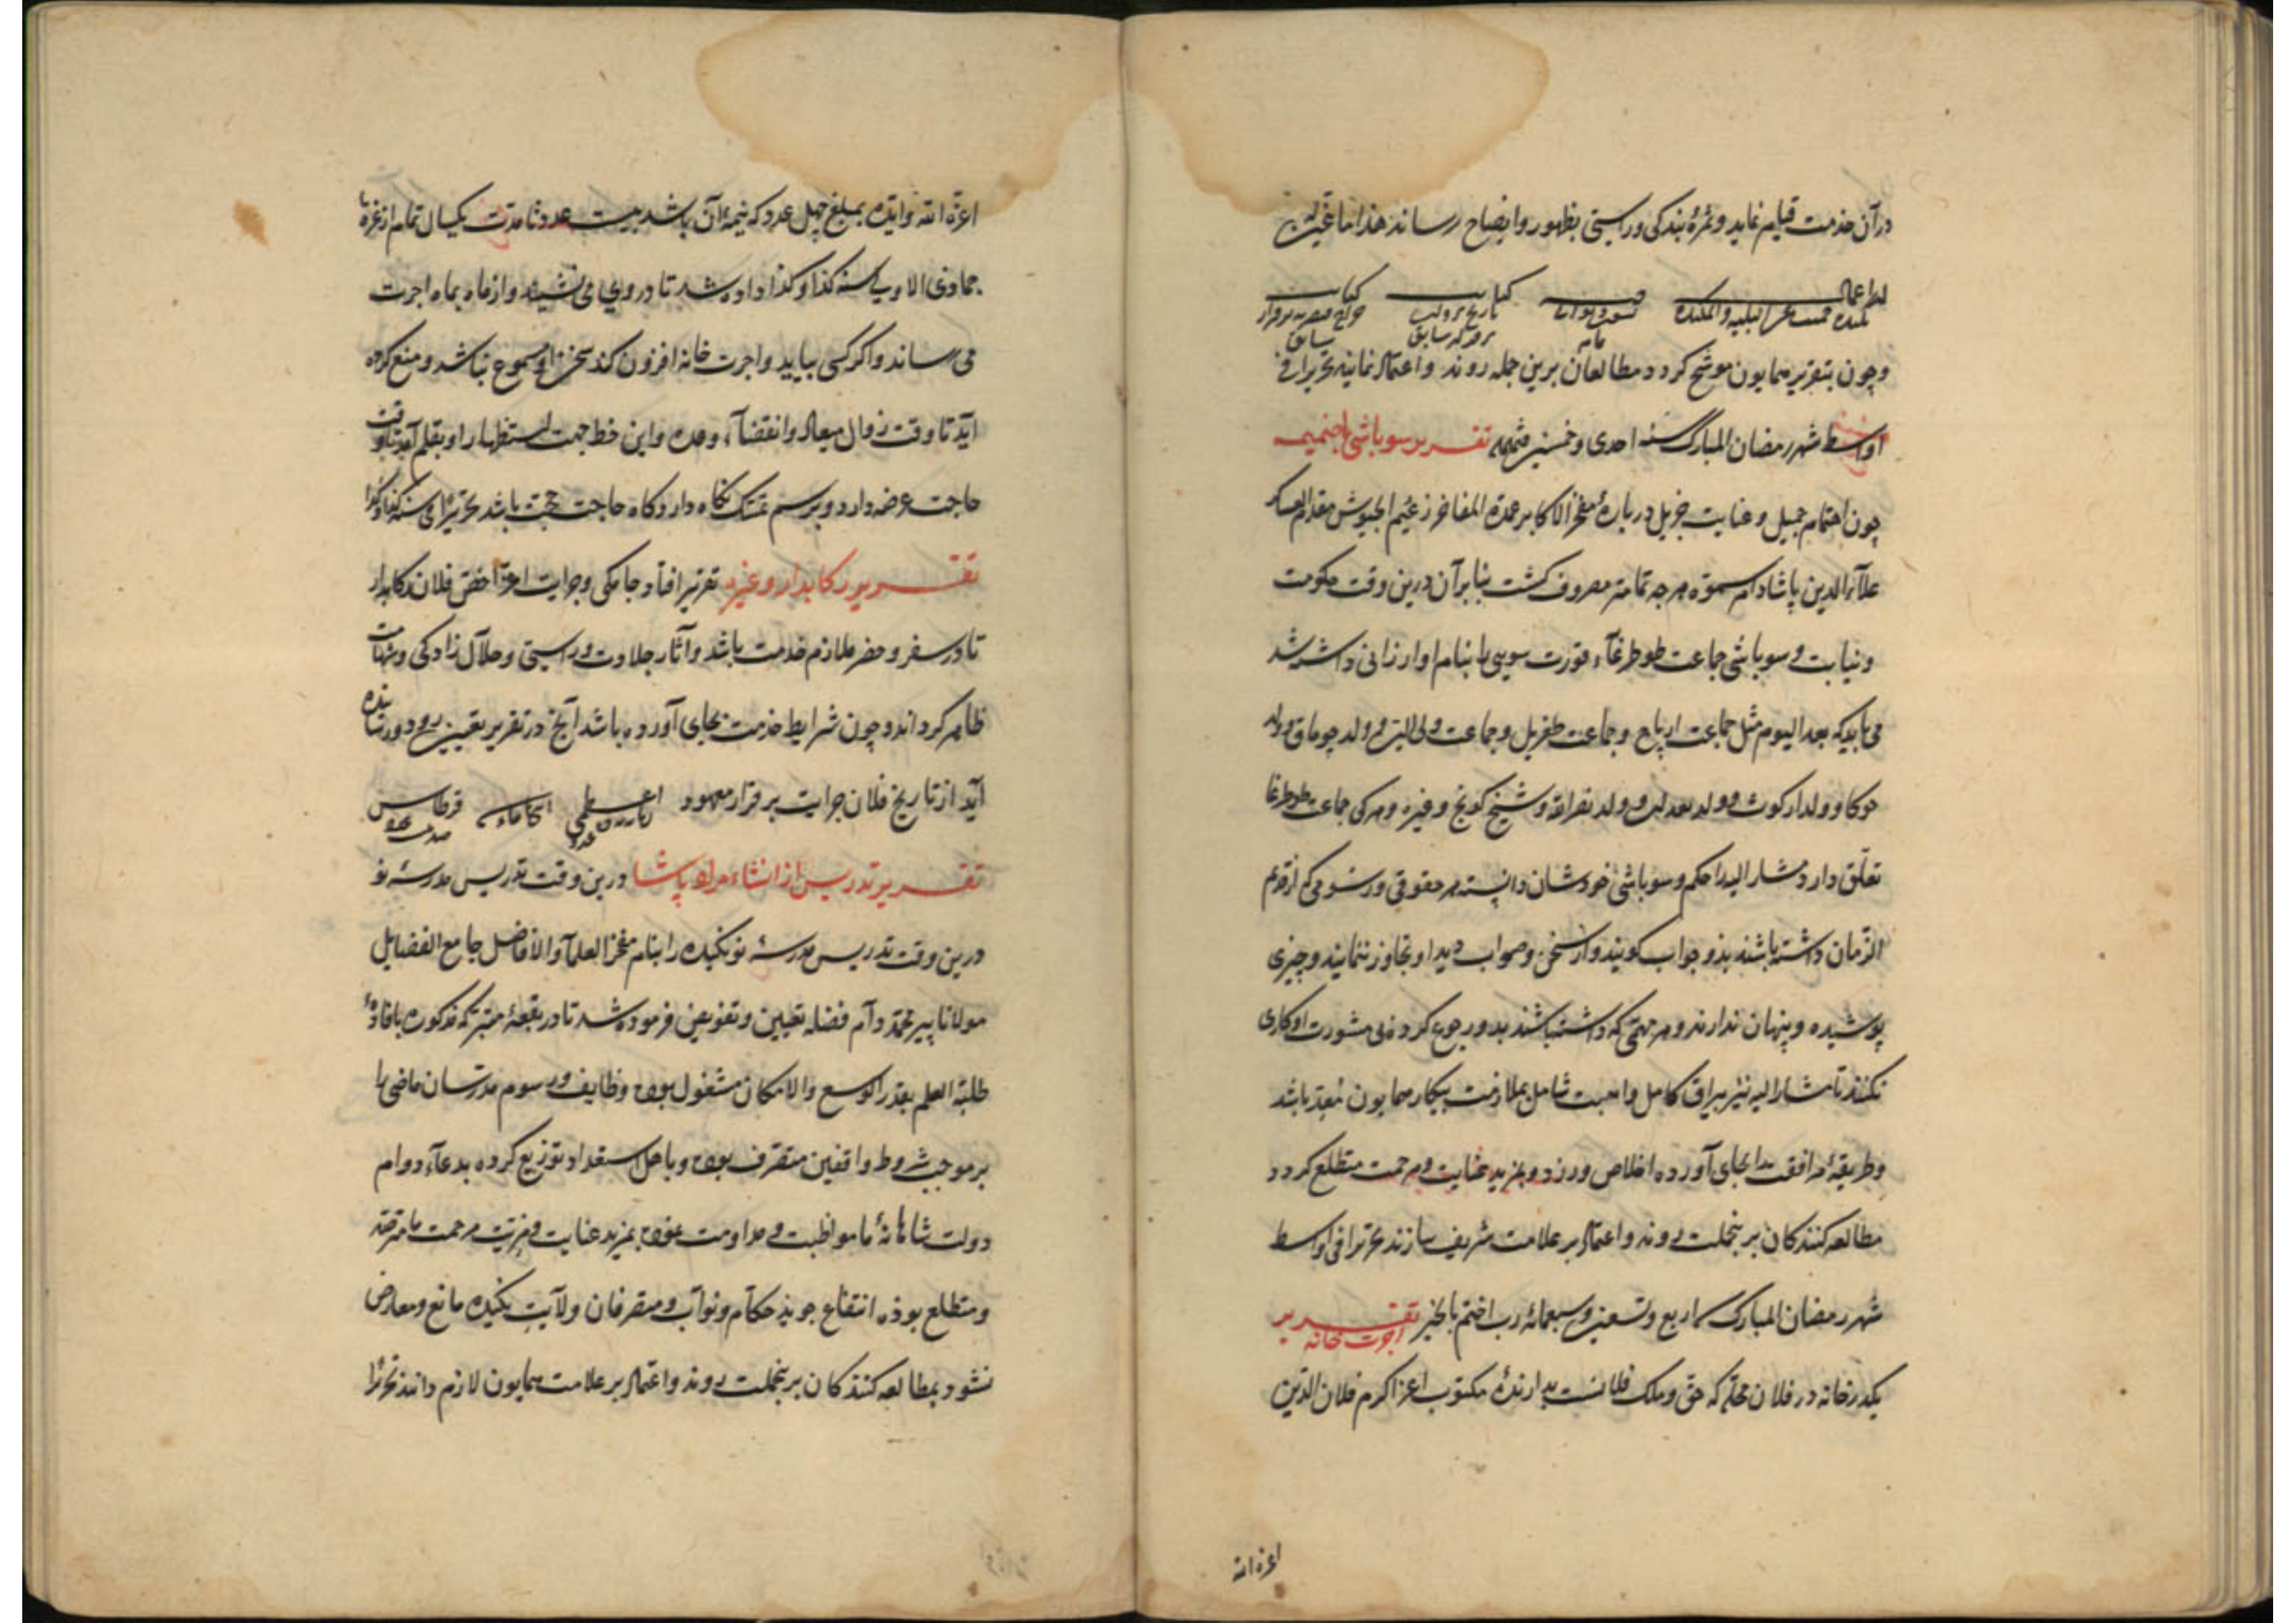 در آن خدمت قیام نماید و ثمرهٔ بندکی و راستی بظهور و ایضاح رساند هذا ما
کتابت کتابت
سابق
و چون بتقریر همایون موشح کردد مطالعان برین جمله روند و اعتماد نمایند تحریرا فی
اواسط شهر رمضان المبارک سنه احدی و خمسین تقریر سوباشی
چون اهتمام جمیل و عنایت جزیل دربارهٔ مفخر الاکابر عمدة المفاخر زعیم الجیوش مقدم العساکر
علاء الدین پاشا دام سموه هرچه تمامتر مصروف کشت بنابرآن درین وقت حکومت
و نیابت و سوباشی جماعت طورغاء را بنام او ارزانی داشته شد
می باید که بعد الیوم مثل جماعت و جماعت طغریل و جماعت ولد
و ولد و ولد و ولد نصر الله و شیخ و غیره و هرکی جماعت
تعلق دارد مشار الیه را حکم و سوباشی خودشان دانسته هر حقوقی و رسومی که از قدیم
الزمان داشته باشند بذو جواب کویند و از سخن و صواب دید او تجاوز ننمایند و چیزی
پوشیده و پنهان ندارند و هر مهمی که داشته باشند بدو رجوع کرده بی مشورت او کاری
نکنند تا مشار الیه نیز بیراق کامل و اهبت شامل بملازمت پیکار همایون معد باشد
و طریقهٔ موافقت بجای آورده اخلاص ورزد و بمزید عنایت و مرحمت متطلع کردد
مطالعه کنندکان برینجملت روند و اعتماد بر علامت شریف سازند تحریرا فی اواسط
شهر رمضان المبارک اربع و تسعین و سبعمائه رب اختم بالخیر تقریر
اجرت خانه
یکدر خانه در فلان محله که حق و ملک فلانست بدارندهٔ مکتوب اعز اکرم فلان الدین
اعزه الله
اعزه الله و ایده بمبلغ چهل عدد که نیمهٔ آن باشد بیست عدد تا مدت یکسال تمام از غرهٔ
جمادی الاولی سنه کذا و کذا داده شد تا در وی می نشیند و از ماه بماه اجرت
می رساند و اکر کسی بیاید و اجرت خانه افزون کند سخن او مسموع نباشد و منع کرده
آید تا وقت زوال میعاد و انقضاء وعده و این خط جهت استظهار او بقلم آمد تا وقت
حاجت عرضه دارد و برسم تمسک نکاه دارد و کاه حاجت حجت باشد تحریرا فی سنه کذا و کذا
تقریر رکابدار و غیره تقریر افتاد جامکی و جرایت اعز اخص فلان رکابدار
تا در سفر و حضر ملازم خدمت باشد و آثار جلادت و راستی و حلال زادکی و شهامت
ظاهر کرداند و چون شرایط خدمت بجای آورده باشد آنج در تقریر تعیین رود رسانیده
آید از تاریخ فلان جرایت بر قرار معهود قرطاس
تقریر تدریس از انشاء مراد پاشا درین وقت تدریس مدرسهٔ نو
درین وقت تدریس مدرسهٔ نو نکیده را بنام مفخر العلماء و الافاضل جامع الفضایل
مولانا پیر محمد دام فضله تعیین و تفویض فرموده شد تا در بقعهٔ متبرکه مذکوره بافادهٔ
طلبة العلم بقدر الوسع و الامکان مشغول بوده وظایف و رسوم مدرسان ماضی را
بر موجب شروط واقفین متصرف بوده و باهل استعداد توزیع کرده بدعاء دوام
دولت شاهانهٔ ما مواظبت و مداومت نموده بمزید عنایت و مزیت مرحمت ما مترصد
و متطلع بوده انتفاع جوید حکام و نواب و متصرفان ولایت نکیده مانع و معارض
نشود مطالعه کنندکان برینجملت روند و اعتماد بر علامت همایون لازم دانند تحریرا